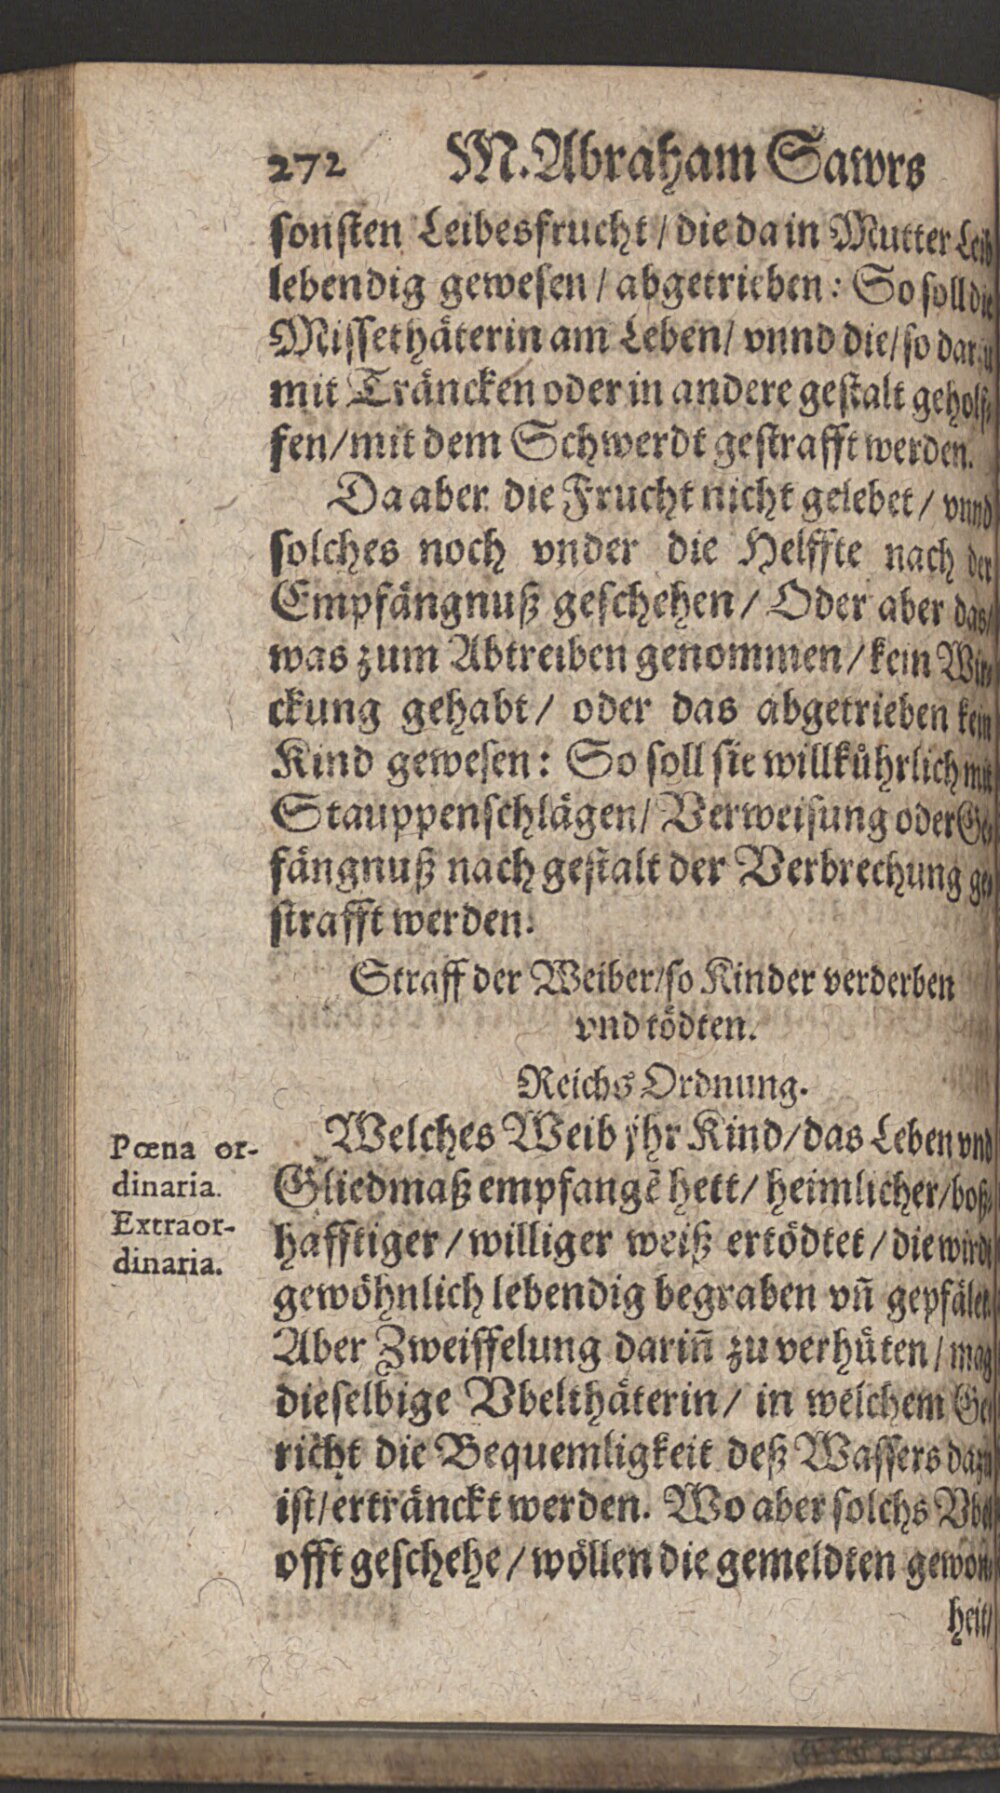 272 M. Abraham Sawrs
sonsten Leibesfrucht / die da in Mutter Leib
lebendig gewesen / abgetrieben: So soll die
Missethäterin am Leben / vnnd die / so darzu
mit Träncken oder in andere gestalt geholf-
fen / mit dem Schwerdt gestrafft werden.
Da aber die Frucht nicht gelebet / vnnd
solches noch vnder die Helffte nach der
Empfängnuß geschehen / Oder aber das /
was zum Abtreiben genommen / kein Wir-
ckung gehabt / oder das abgetrieben kein
Kind gewesen: So soll sie willkührlich mit
Stauppenschlägen / Verweisung oder Ge-
fängnuß nach gestalt der Verbrechung ge-
strafft werden.
Straff der Weiber / so Kinder verderben
vnd tödten.
Reichs Ordnung.
Pœna or-
dinaria.
Extraor-
dinaria.
Welches Weib jhr Kind / das Leben vnd
Gliedmaß empfangẽ hett / heimlicher / boß-
hafftiger / williger weiß ertödtet / die wirdt
gewöhnlich lebendig begraben vñ gepfälet.
Aber Zweiffelung dariñ zu verhüten / mag
dieselbige Vbelthäterin / in welchem Ge-
richt die Bequemligkeit deß Wassers dazu
ist / ertränckt werden. Wo aber solchs Vbel
offt geschehe / wöllen die gemeldten gewon-
heit /